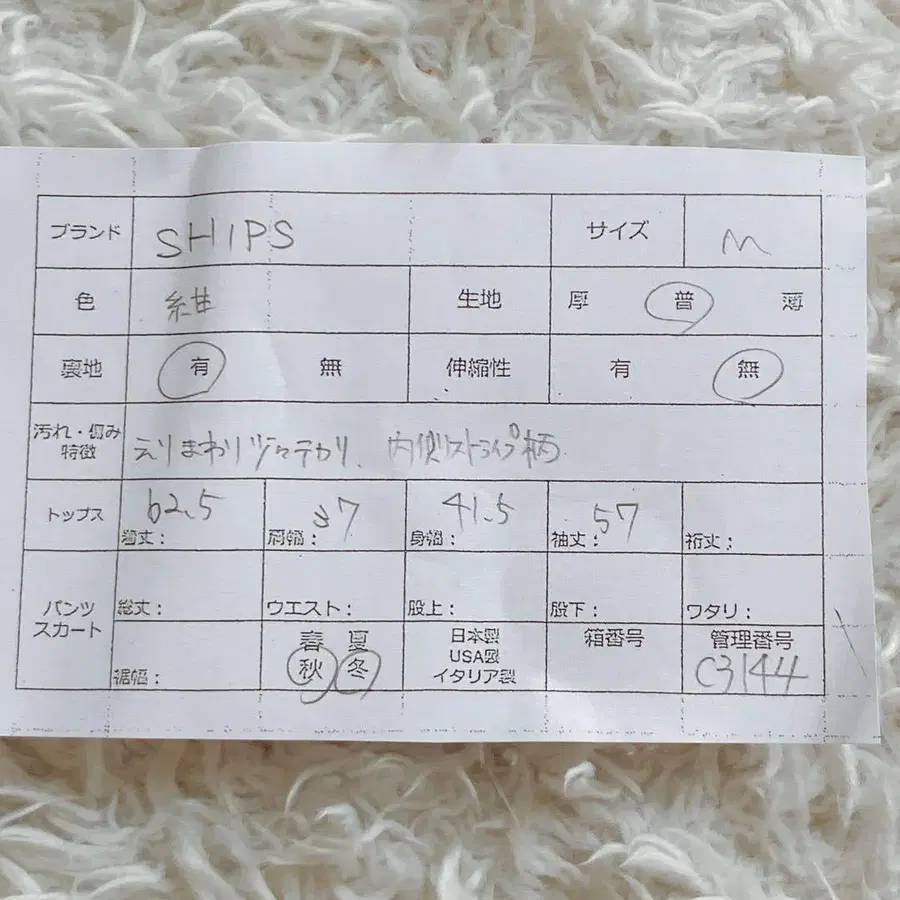 ブランド SHIPS サイズ M
色 紺 生地 厚 普 薄
裏地 有 無 伸縮性 有 無
汚れ・傷み
特徴 えりまわり少々テカリ、内側ストライプ柄
トップス 着丈: 62.5 肩幅: 37 身幅: 41.5 袖丈: 57 裄丈:
パンツ
スカート 総丈: ウエスト: 股上: 股下: ワタリ:
裾幅: 春 夏 秋 冬
日本製
USA製
イタリア製
箱番号
管理番号
C3144